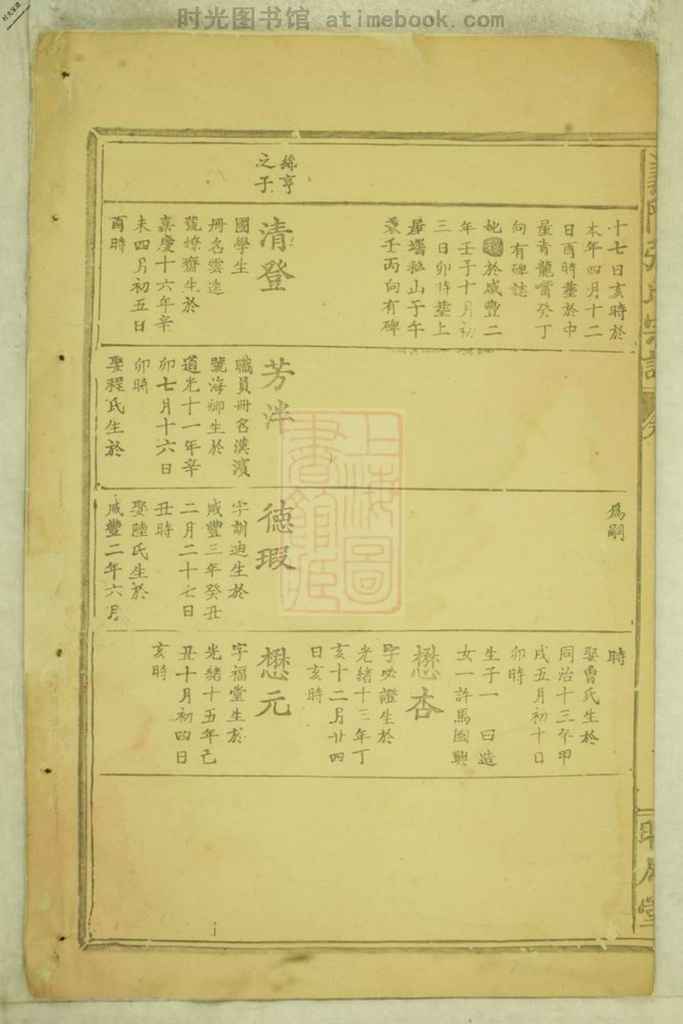 时光图书馆 atimebook.com
之子
十七日亥時於
本年四月十二
日酉時塟於中
青龍嘴癸丁
向有碑誌
於咸豐二
年壬子十月初
三日卯時塟上
山子午
壬丙向有碑
清登
國學生
冊名雲逵
號燎齋生於
嘉慶十六年辛
未四月初五日
酉時
芳泮
職員冊名漢濱
號海卿生於
道光十一年辛
卯七月十六日
卯時
娶程氏生於
為嗣
德瑕
字訓迪生於
咸豐三年癸丑
二月二十七日
丑時
娶陸氏生於
咸豐二年六月
時
娶曹氏生於
同治十三年甲
戌五月初十日
卯時
生子一 曰造
女一許馬國興
懋杏
字必證生於
光緒十三年丁
亥十二月廿四
日亥時
懋元
字福堂生於
光緒十五年己
丑十月初四日
亥時
上海圖書館藏